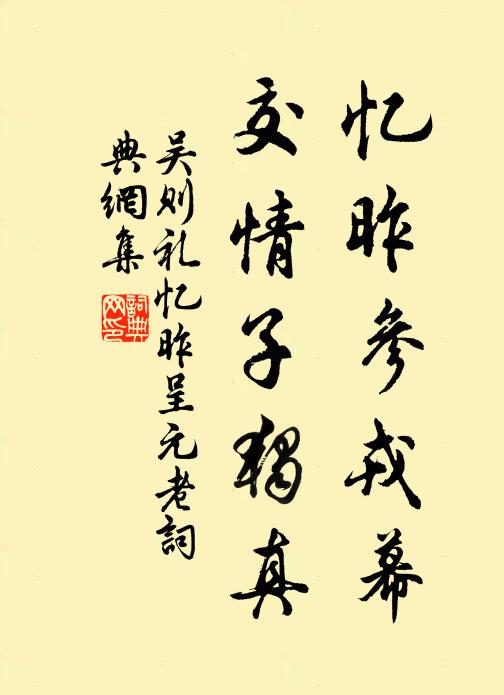 忆昨参戎幕
交情子独真
吴则礼忆昨呈元老詞
典網集
詞典网印